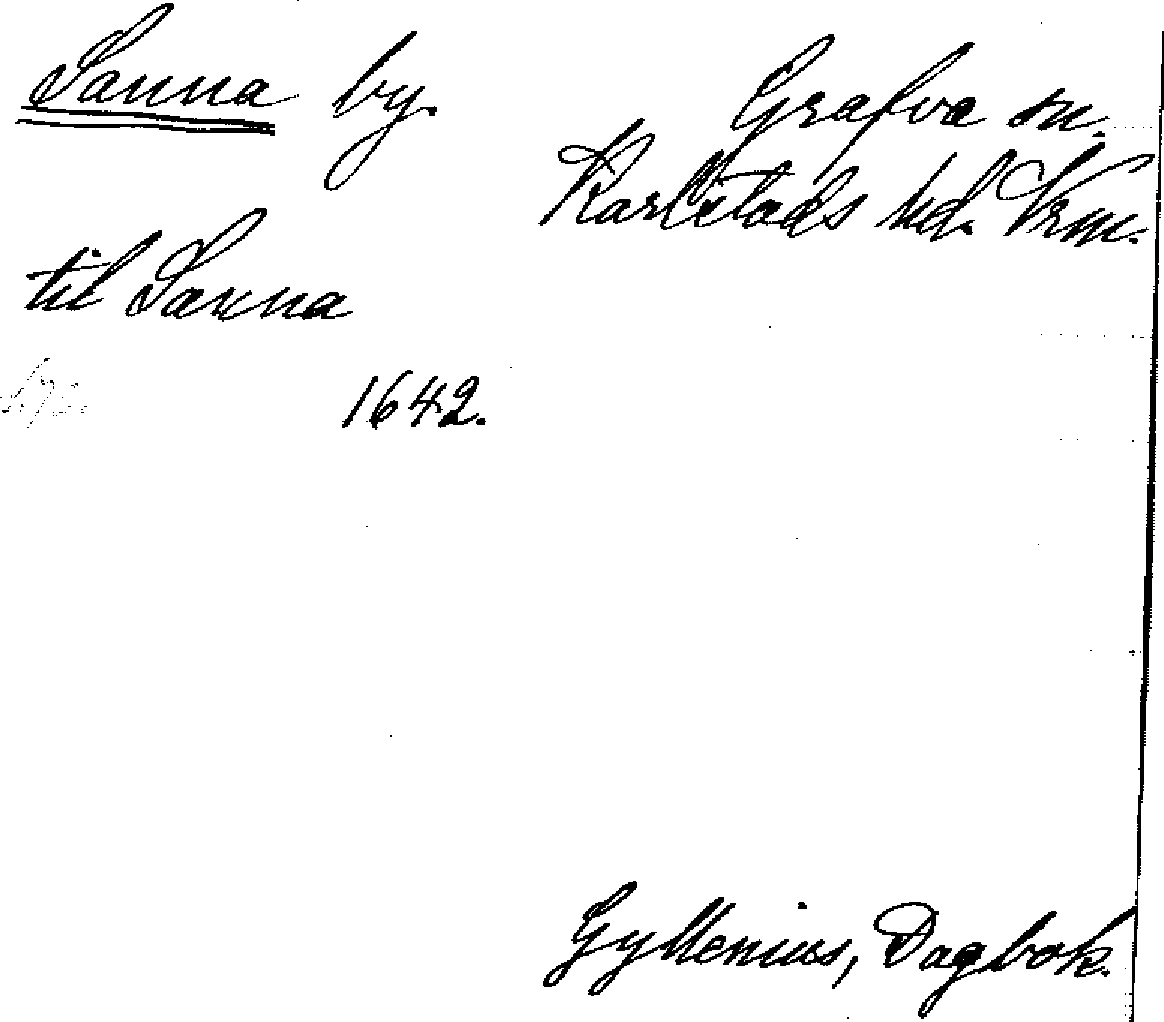 Sanna by.
Grafva sn.
Karlstads hd. Vrm.
til Sanna
1642.
Gyllenius, Dagbok.